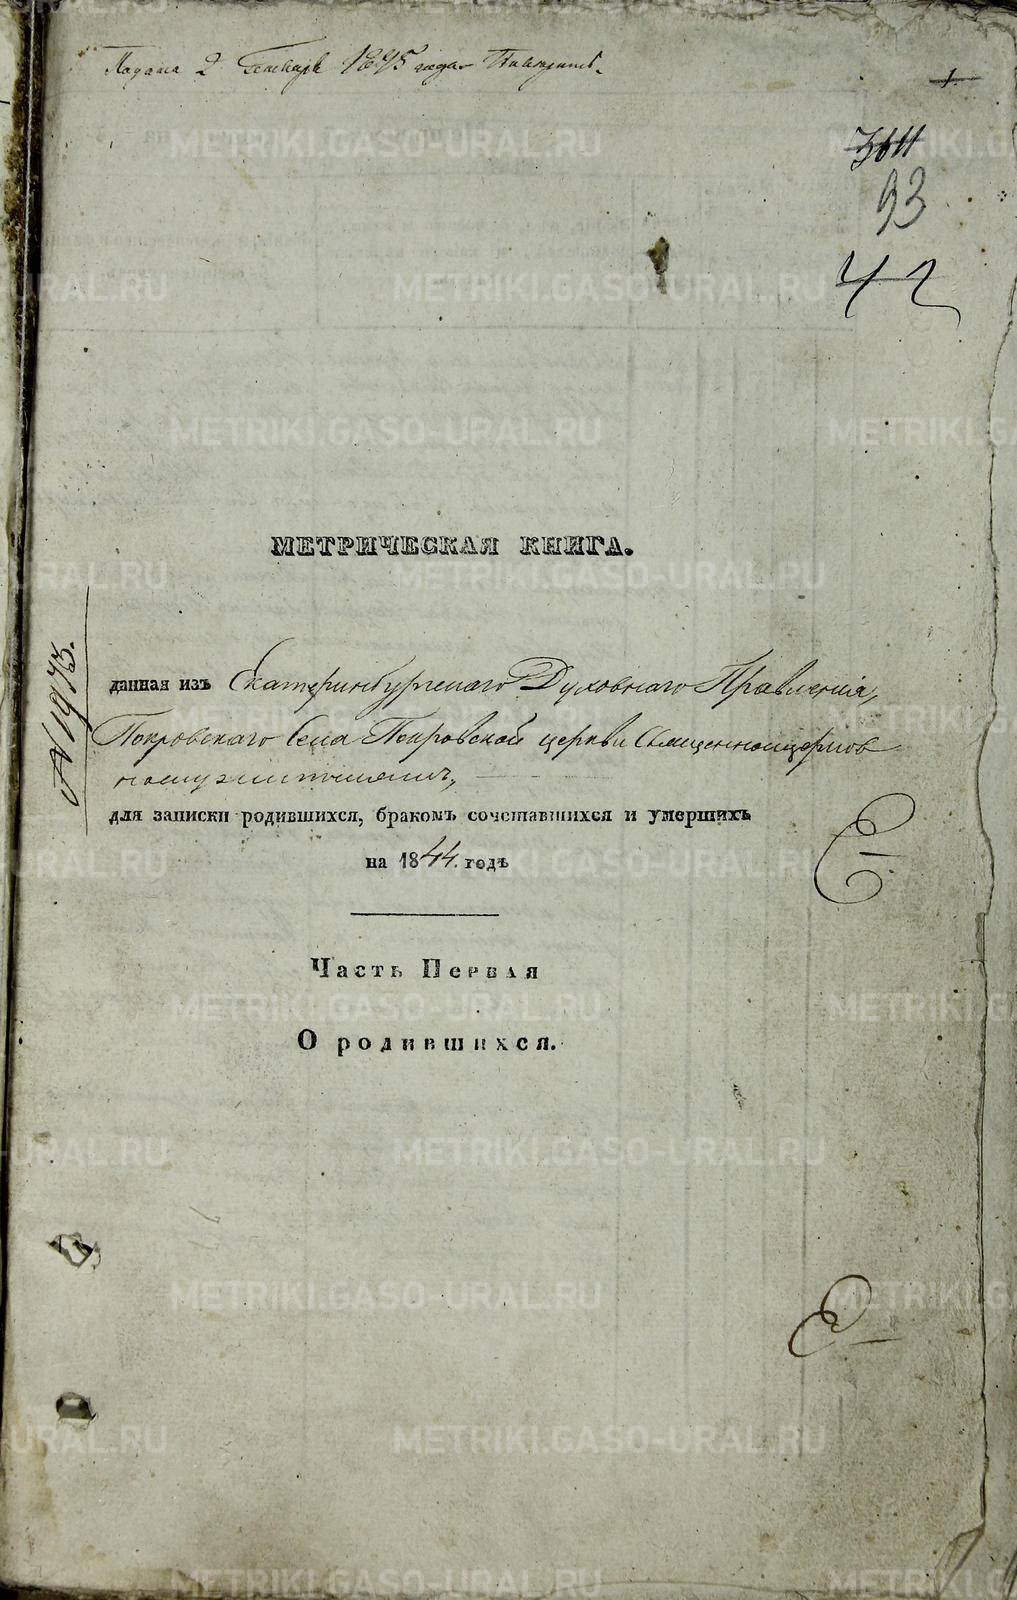 Подана 2 Генваря 1845 года
1.
3611
93
42
МЕТРИЧЕСКАЯ КНИГА.
№ 1975.
данная изъ Екатеринбургскаго Духовнаго Правленія,
Покровскаго Села Покровской церкви Священноцерков
нослужителямъ,
для записки родившихся, бракомъ сочетавшихся и умершихъ
на 1844. годъ
Часть Первая
О родившихся.
METRIKI.GASO-URAL.RU